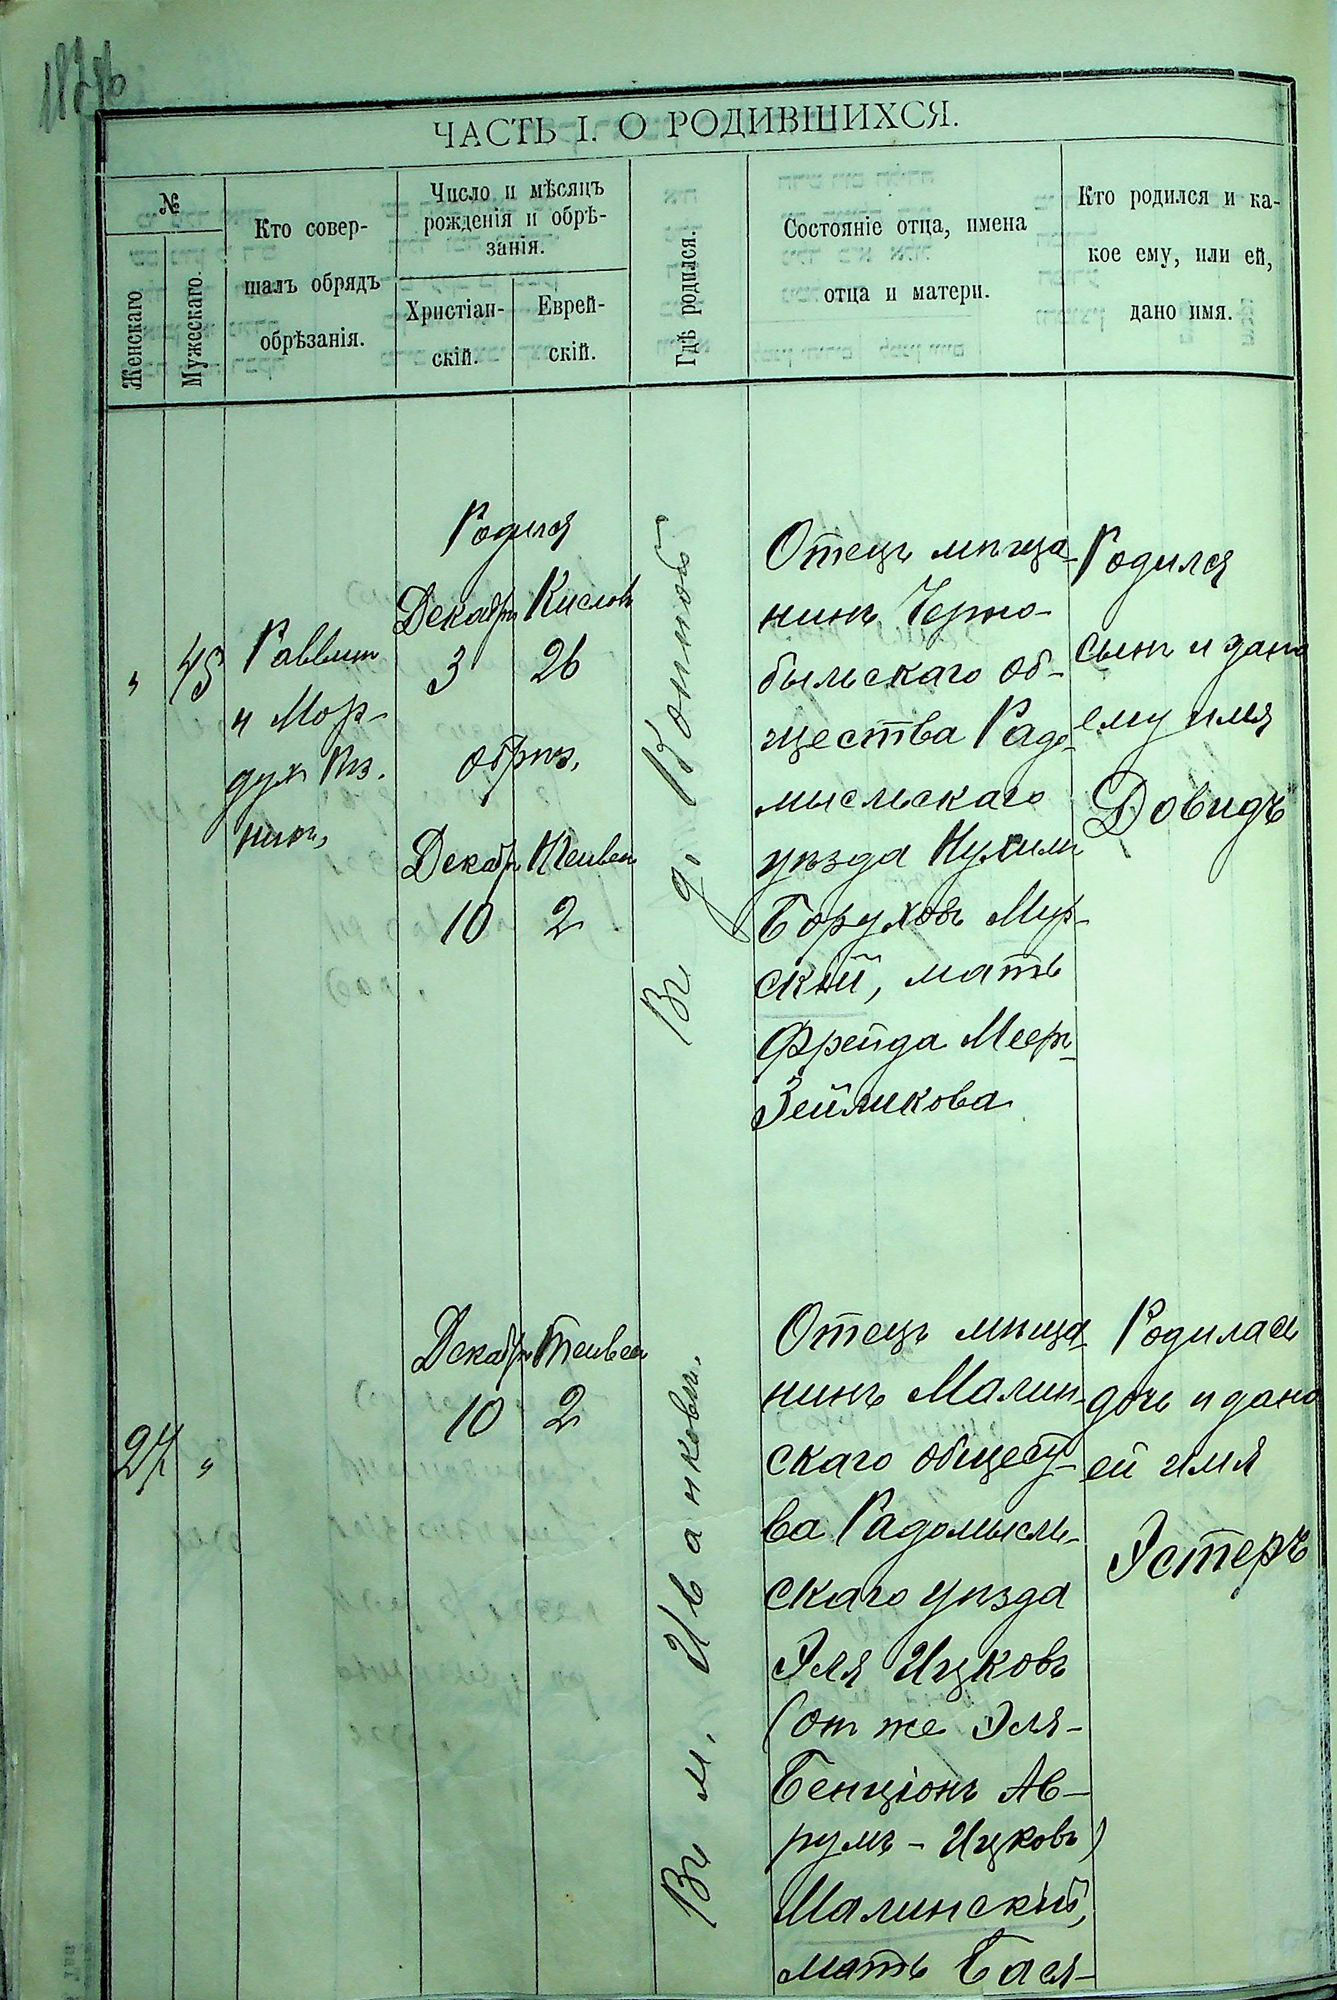 ЧАСТЬ I. О РОДИВШИХСЯ.
№
Женскаго
Мужескаго.
Кто совер-
шалъ обрядъ
обрѣзанія.
Число и мѣсяцъ
рожденія и обрѣ-
занія.
Христіан-
скій.
Еврей-
скій.
Гдѣ родился.
Состояніе отца, имена
отца и матери.
Кто родился и ка-
кое ему, или ей,
дано имя.
„ 45
Раввин
и Мор-
дух
Родился
Декабр Кислов
3 26
обрѣз.
Декабр Тейвес
10 2
Въ д.
Отецъ мѣща-
нинъ Черно-
быльскаго об-
щества Радо-
мысльскаго
уѣзда Нухим
Боруховъ Мур-
скій, мать
Фрейда Меер-
Зейликова
Родился
сынъ и дано
ему имя
Довидъ
27 „
Декабр Тейвес
10 2
Въ м. Иванковѣ.
Отецъ мѣща-
нинъ Малин-
скаго общест-
ва Радомысль-
скаго уѣзда
Эля Ицковъ
(он же Эля-
Бенціонъ Ав-
румъ-Ицковъ)
Малинскій,
мать Бася-
Родилась
дочь и дано
ей имя
Эстеръ